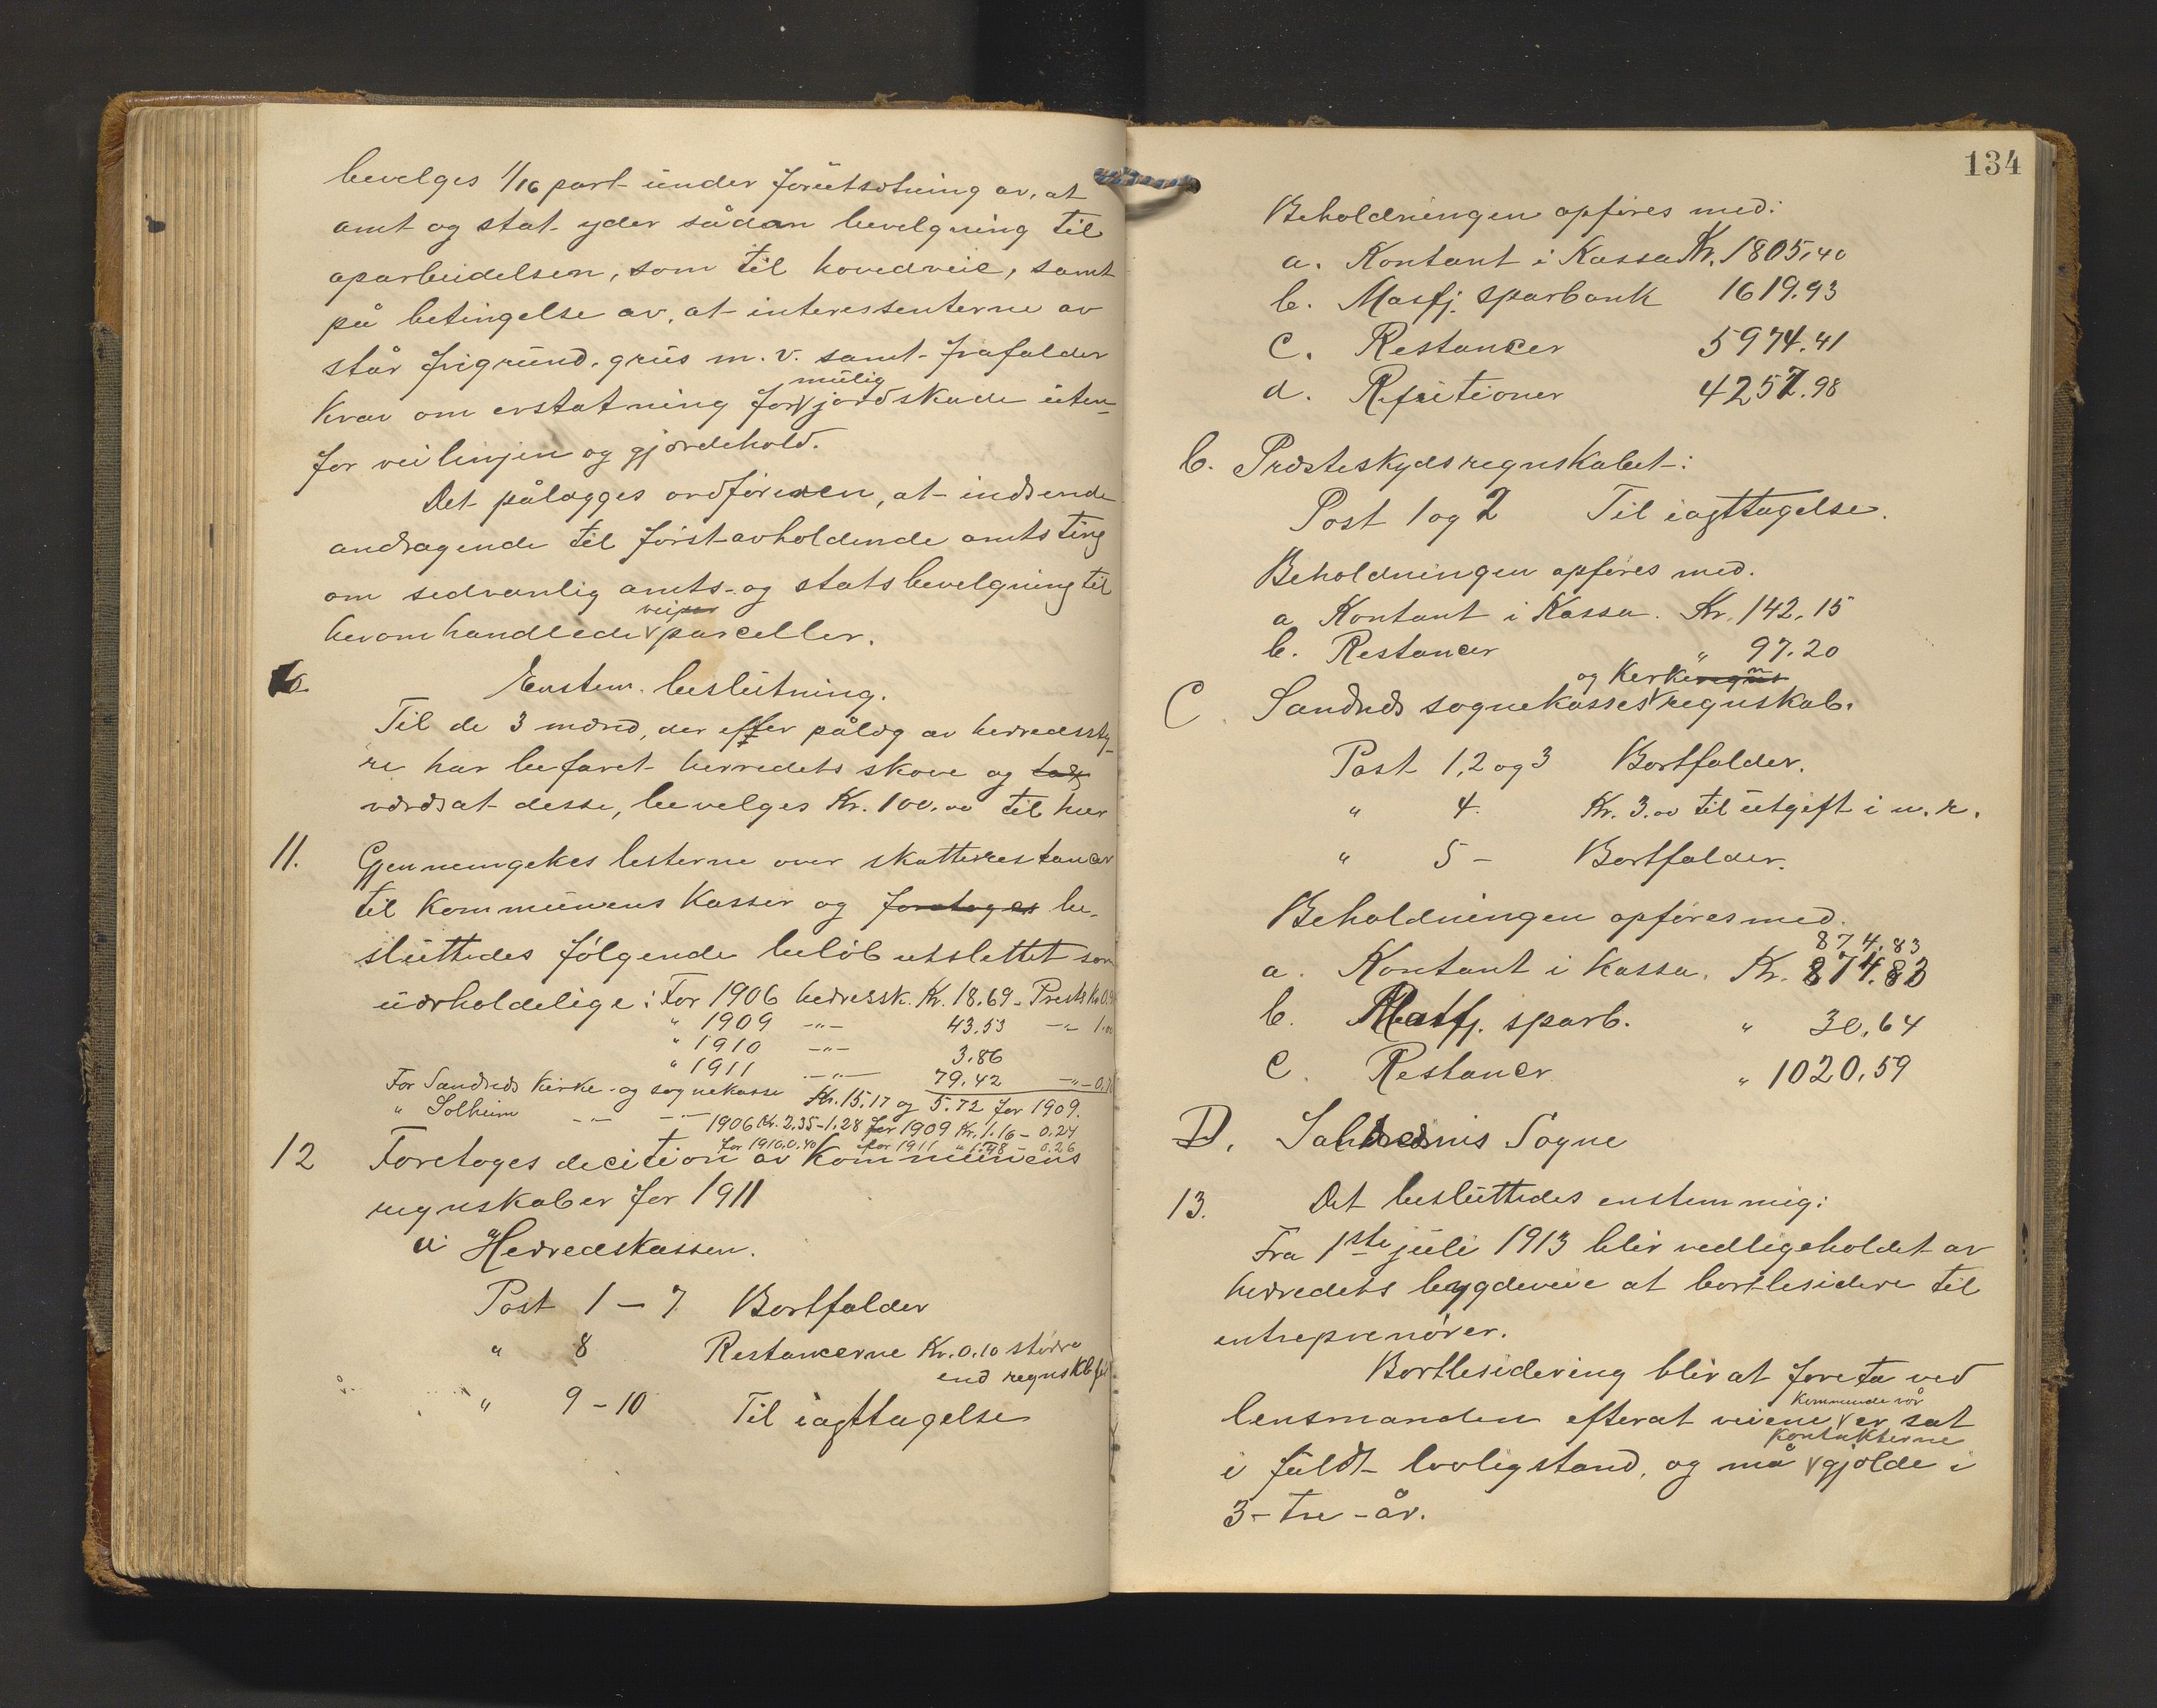 bevelges 1/16 part under forutsætning av, at
amt og stat yder sådan bevelgning til
oparbeidelsen, som til hovedveie, samt
på betingelse av, at interessenterne av
står frigrund, grus m. v. samt frafalder
krav om erstatning for mulig jordskade uten-
for veilinjen og gjærdehold.
Det pålægges ordføreren, at indsende
andragende til først avholdende amtsting
om sedvanlig amts- og statsbevelgning til
heromhandlede vei parceller.
10. Enstem. beslutning.
Til de 3 mænd, der efter pålæg av herredssty-
re har befaret herredets skove og
værdsat desse, bevelges Kr. 100.00 til hver
11. Gjennemgekes listerne over skatterestancer
til kommunens kasser og foretoges be-
sluttedes følgende beløb utslettet som
uærholdelige: For 1906 herredssk. Kr. 18.69 - Prestsk. Kr. 0.
" 1909 -"- 43.53 -"- 1.00
" 1910 -"- 3.86
" 1911 -"- 79.42 -"- 0,
For Sandnes kirke- og sognekasse Kr. 15.17 og 5.72 for 1909.
" Solheim -"- -"- 1906 Kr. 2.35 - 1.28 for 1909 Kr. 1.16 - 0.24
for 1910 0.40 for 1911 " 1.78 - 0.26
12 Foretoges decition av kommunens
regnskaber for 1911
a Herredskassen.
Post 1 - 7 Bortfalder
" 8 Restancerne Kr. 0.10 større
end regnskb.
" 9 - 10 Til iagttagelse
134
Beholdningen opføres med:
a. Kontant i Kassa Kr. 1805,40
b. Masfj. sparbank 1619.93
c. Restancer 5974.41
d. Refutioner 4257.98
b. Præsteskydsregnskabet:
Post 1 og 2 Til iagttagelse.
Beholdningen opføres med.
a Kontant i Kassa. Kr. 142.15
b. Restancer " 97.20
og Kerke
C. Sandnes sognekasses regnskab.
Post 1, 2 og 3 Bortfalder.
" 4. Kr. 3.00 til utgift i n. r.
" 5 - Bortfalder.
Beholdningen opføres med.
874.83
a. Kontant i kassa. Kr. 874.83
b. Masfj. sparb. " 30,64
c. Restancer " 1020,59
D. Solheims Sogne
13. Det besluttedes enstemmig:
Fra 1ste juli 1913 blir vedligeholdet av
herredets bygdeveie at bortlesidere til
entreprenører.
Bortlesidering blir at foreta ved
lensmanden efterat veiene kommende vår er sat
i fuldt lovlig stand, og må kontrakterne gjelde i
3 - tre - år.